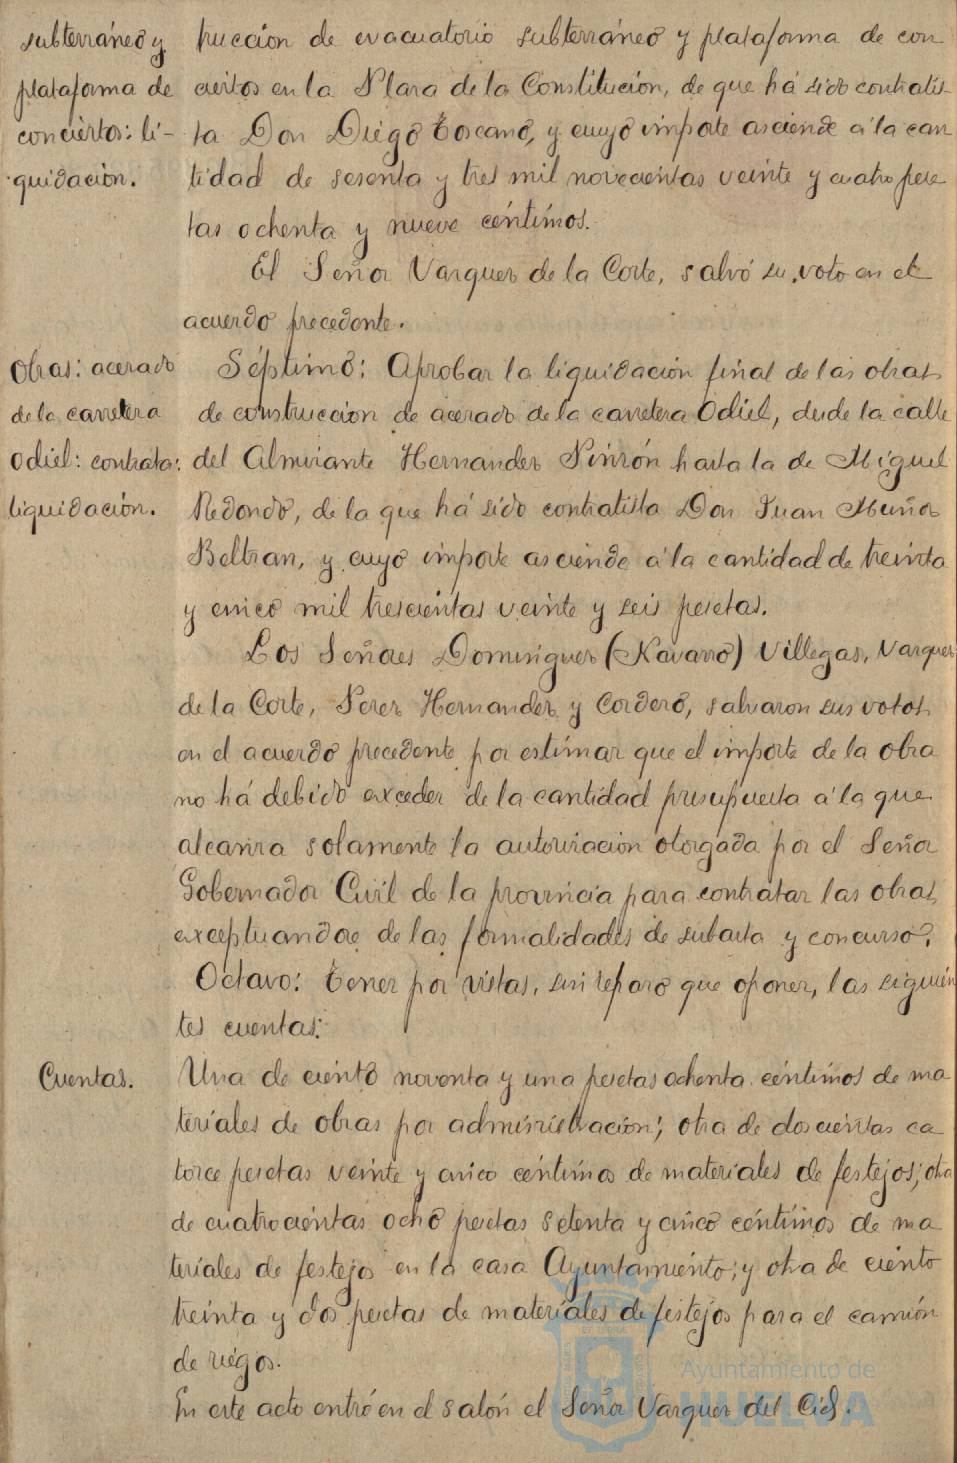 subterráneo y
plataforma de
conciertos: li-
quidación.
trucción de evacuatorio subterráneo y plataforma de con
ciertos en la Plaza de la Constitución, de que há sido contratis-
ta Don Diego Toscano, y cuyo importe asciende á la can
tidad de sesenta y tres mil novecientas veinte y cuatro pese
tas ochenta y nueve céntimos.
El Señor Vazquez de la Corte, salvó su voto en el
acuerdo precedente.
Obras: acerado
de la carretera
Odiel: contrata:
liquidación.
Séptimo: Aprobar la liquidación final de las obras
de construccion de acerado de la carretera Odiel, desde la calle
del Almirante Hernandez Pinzón hasta la de Miguel
Redondo, de la que há sido contratista Don Juan Muñoz
Beltran, y cuyo importe asciende á la cantidad de treinta
y cinco mil trescientas veinte y seis pesetas.
Los Señores Dominguez (Navarro) Villegas, Vazquez
de la Corte, Perez Hernandez y Cordero, salvaron sus votos
en el acuerdo precedente por estimar que el importe de la obra
no há debido exceder de la cantidad presupuesta á la que
alcanza solamente la autorizacion otorgada por el Señor
Gobernador Civil de la provincia para contratar las obras,
exceptuandose de las formalidades de subasta y concurso.
Octavo: Tener por vistas, sin reparo que oponer, las siguien
tes cuentas:
Cuentas.
Una de ciento noventa y una pesetas ochenta céntimos de ma
teriales de obras por administración; otra de doscientas ca
torce pesetas veinte y cinco céntimos de materiales de festejos; otra
de cuatrocientas ocho pesetas setenta y cinco céntimos de ma
teriales de festejos en la casa Ayuntamiento; y otra de ciento
treinta y dos pesetas de materiales de festejos para el camión
de riegos.
En este acto entró en el salón el Señor Vazquez del Cid.
Ayuntamiento de
HUELVA